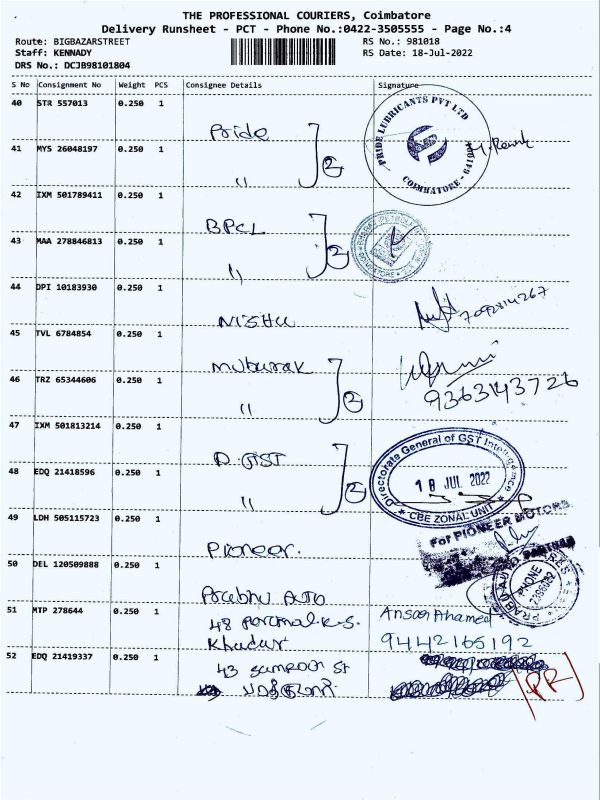 THE PROFESSIONAL COURIERS, Coimbatore
Delivery Runsheet - PCT - Phone No.:0422-3505555 - Page No.:4
Route: BIGBAZARSTREET RS No.: 981018
Staff: KENNADY RS Date: 18-Jul-2022
DRS No.: DCJB98101804
S No Consignment No Weight PCS Consignee Details Signature
40 STR 557013 0.250 1
Pride
PRIDE LUBRICANTS PVT LTD
COIMBATORE - 641001
41 MYS 26048197 0.250 1
" 2
42 IXM 501789411 0.250 1
BPCL
43 MAA 278846813 0.250 1
" 2
44 DPI 10183930 0.250 1
NISHU
7092814267
45 TVL 6784854 0.250 1
Mubarak
46 TRZ 65344606 0.250 1
" 2
9363143726
47 IXM 501813214 0.250 1
D.GST
Directorate General of GST Intelligence
18 JUL 2022
CBE ZONAL UNIT
48 EDQ 21418596 0.250 1
" 2
49 LDH 505115723 0.250 1
Pioneer.
For PIONEER MOTORS
PARTNER
50 DEL 120509888 0.250 1
Prabhu Auto
PHONE
51 MTP 278644 0.250 1
48 Perumal K.S.
Khadar
Ansar Ahamed
9442165192
52 EDQ 21419337 0.250 1
43 St
PR